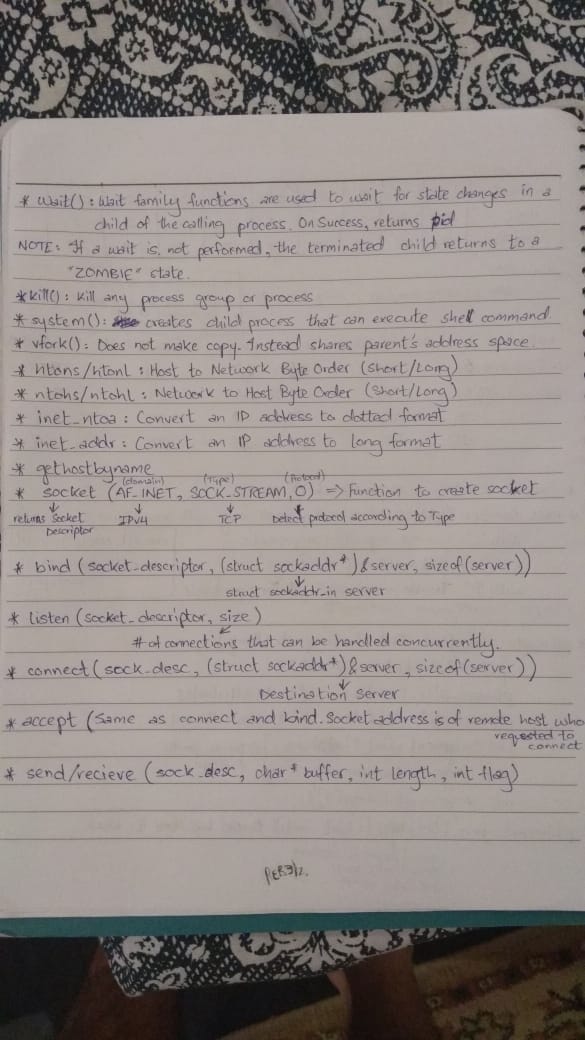 * wait() : Wait family functions are used to wait for state changes in a
child of the calling process. On Success, returns pid
NOTE: If a wait is not performed, the terminated child returns to a
"ZOMBIE" state.
* kill() : Kill any process group or process
* system() : creates child process that can execute shell command.
* vfork() : Does not make copy. Instead shares parent's address space.
* htons/htonl : Host to Network Byte Order (Short/Long)
* ntohs/ntohl : Network to Host Byte Order (Short/Long)
* inet_ntoa : Convert an ID address to dotted format
* inet_addr : Convert an IP address to long format
* gethostbyname
(domain) (Type) (Protocol)
* socket (AF_INET, SOCK_STREAM, 0) => Function to create socket
returns Socket Descriptor IPV4 TCP Detect protocol according to Type
* bind (socket_descriptor, (struct sockaddr*)&server, sizeof(server))
struct sockaddr_in server
* listen (socket_descriptor, size)
# of connections that can be handled concurrently.
* connect (sock_desc, (struct sockaddr*)&server, sizeof(server))
Destination Server
* accept (Same as connect and bind. Socket address is of remote host who
requested to
connect
* send/recieve (sock_desc, char* buffer, int length, int flag)